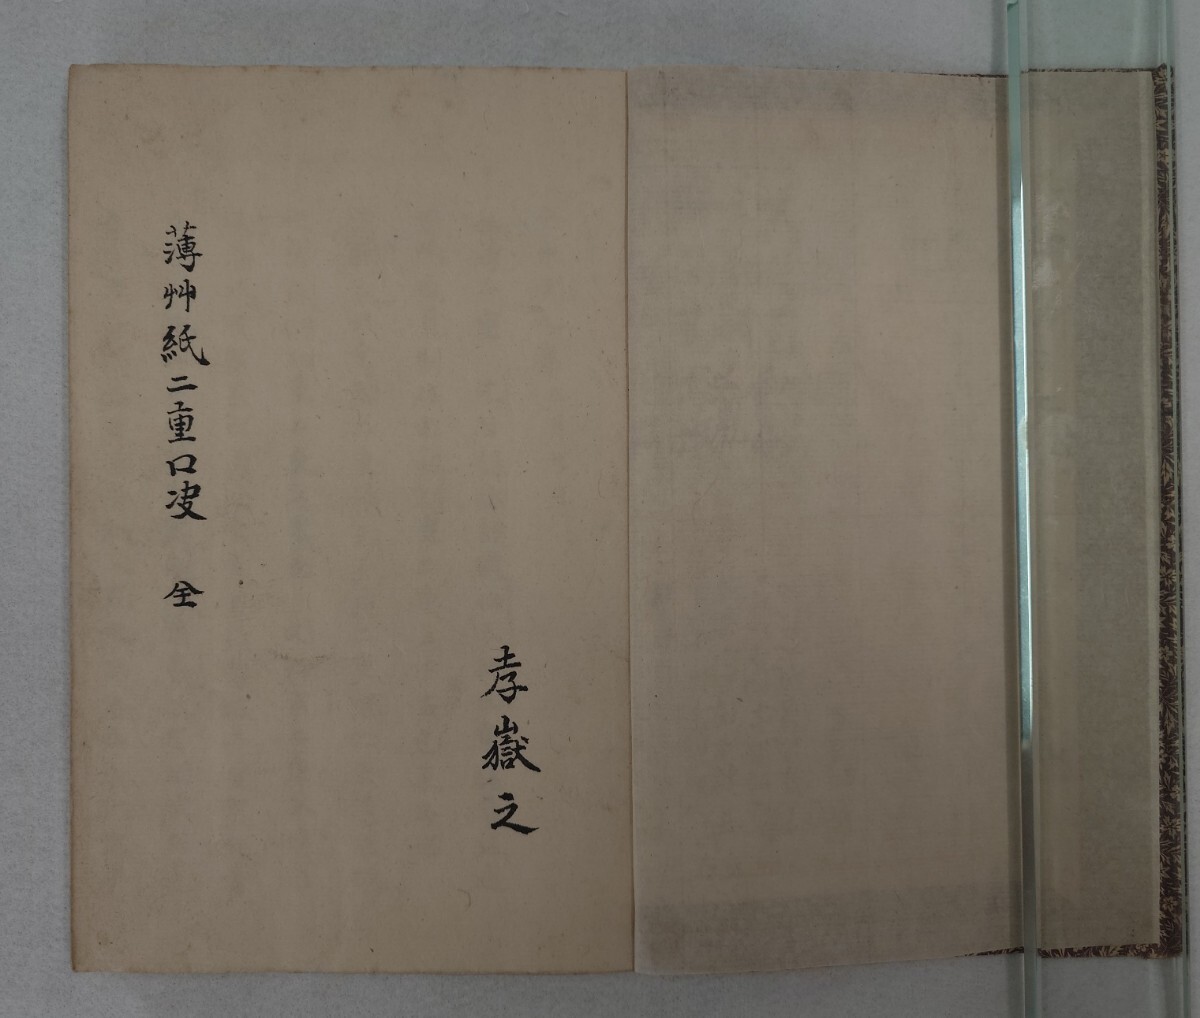 孝嶽之
薄艸紙二重口决 全